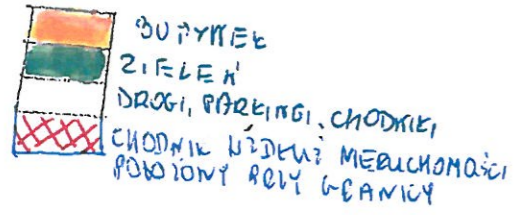 BUDYNEK
ZIELEŃ
DROGI, PARKINGI, CHODNIKI,
CHODNIK WZDŁUŻ NIERUCHOMOŚCI
POŁOŻONY PRZY GRANICY